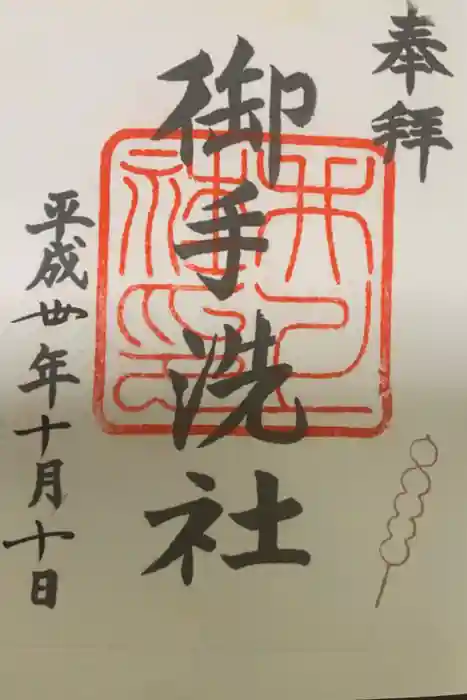 奉拝
御手洗社
平成丗年十月十日